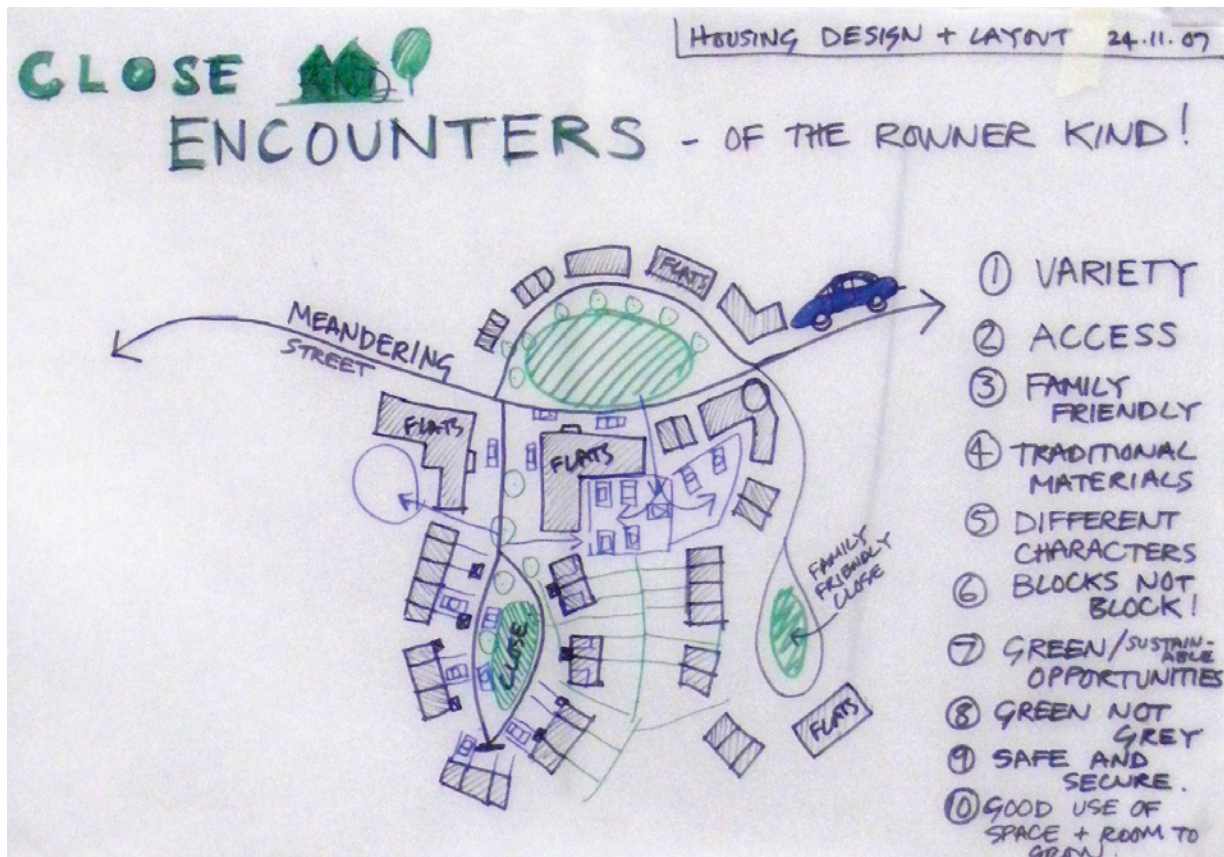 HOUSING DESIGN + LAYOUT 24.11.07
CLOSE
ENCOUNTERS - OF THE ROWNER KIND!
MEANDERING
STREET
FLATS
FLATS
FLATS
CLOSE
FAMILY
FRIENDLY
CLOSE
FLATS
① VARIETY
② ACCESS
③ FAMILY
FRIENDLY
④ TRADITIONAL
MATERIALS
⑤ DIFFERENT
CHARACTERS
⑥ BLOCKS NOT
BLOCK!
⑦ GREEN/SUSTAIN-
ABLE
OPPORTUNITIES
⑧ GREEN NOT
GREY
⑨ SAFE AND
SECURE.
⑩ GOOD USE OF
SPACE + ROOM TO
GROW.